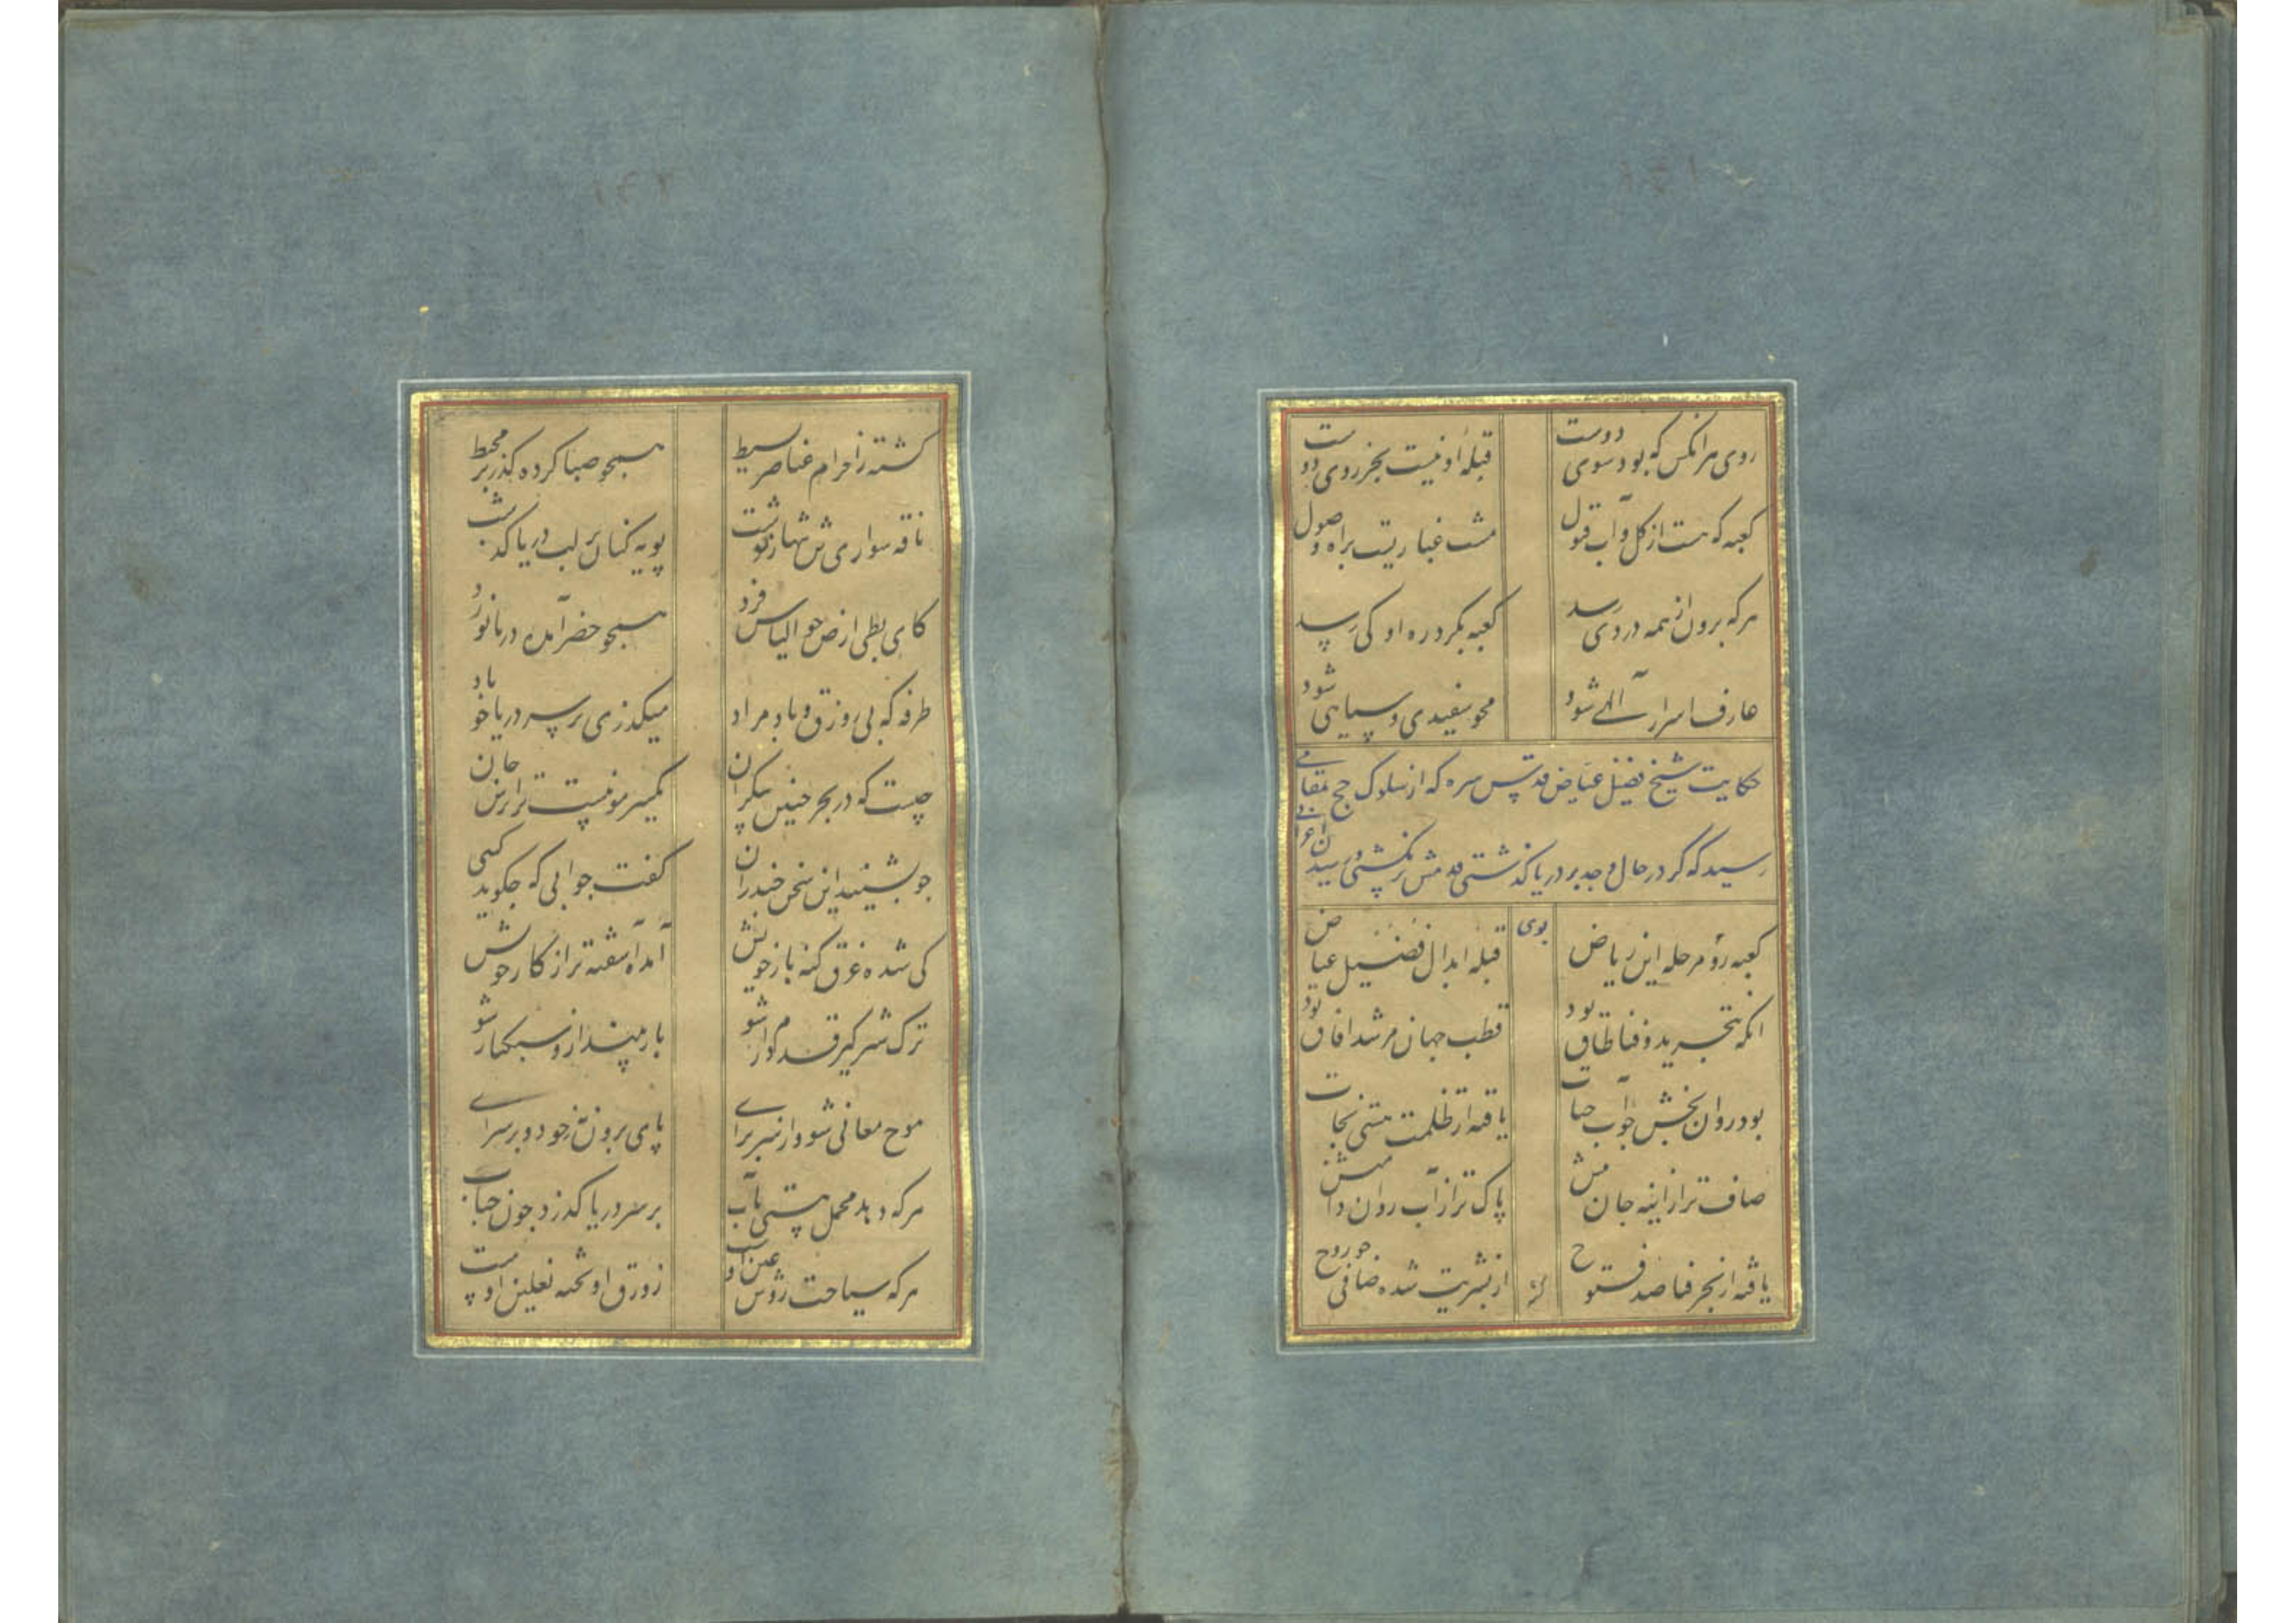 روی هر آنکس که بود سوی دوست    قبله او نیست بجز روی دوست
کعبه که هست از گل و آب قبول    مشت غباریست براه وصول
هر که برون از همه در وی رسد    کعبه بگرد ره او کی رسد
عارف اسرار آلهی شود    محو سفیدی و سیاهی شود
حکایت شیخ فضیل عیاض قدس سره که از سلوک حج بمقامی
رسید که گر در حال وجد بر دریا گذشتی قدمش تر نگشتی
کعبه رو مرحله این ریاض    قبله ابدال فضیل عیاض
انکه بتجرید و فنا طاق بود    قطب جهان مرشد افاق بود
بود روان بخش چو آب حیات    یافته از ظلمت هستی نجات
صاف تر از اینه جان منش    پاک تر از آب روان دامنش
یافته از بحر فنا صد فتوح    از بشریت شده صافی چو روح
گشته ز احرام عناصر بسیط    همچو صبا کرده گذر بر محیط
ناقه سواری ش تنها    پویه کنان بر لب دریا گذشت
کای بطی ارض چو الیاس فرد    همچو خضر آمده دریا نورد
طرفه که بی زورق و باد مراد    میگذری بر سر دریا چو باد
چیست که در بحر چنین بیکران    یکسر مو نیست ترا ترس جان
چو بشنید این سخن    گفت جوابی که چگوید کسی
کی شده غرق گنه بار خویش    آمده آشفته تر از کار خویش
ترک شر گیر قدم دار شو    بار میندازو سبکبار شو
موج معانی شو و از سر برای    پای برون نه ز خود و برسرای
هر که دهد محمل هستی بآب    بر سر دریا گذرد چون حباب
هر که سیاحت روش عین او    زورق او تخته نعلین اوست